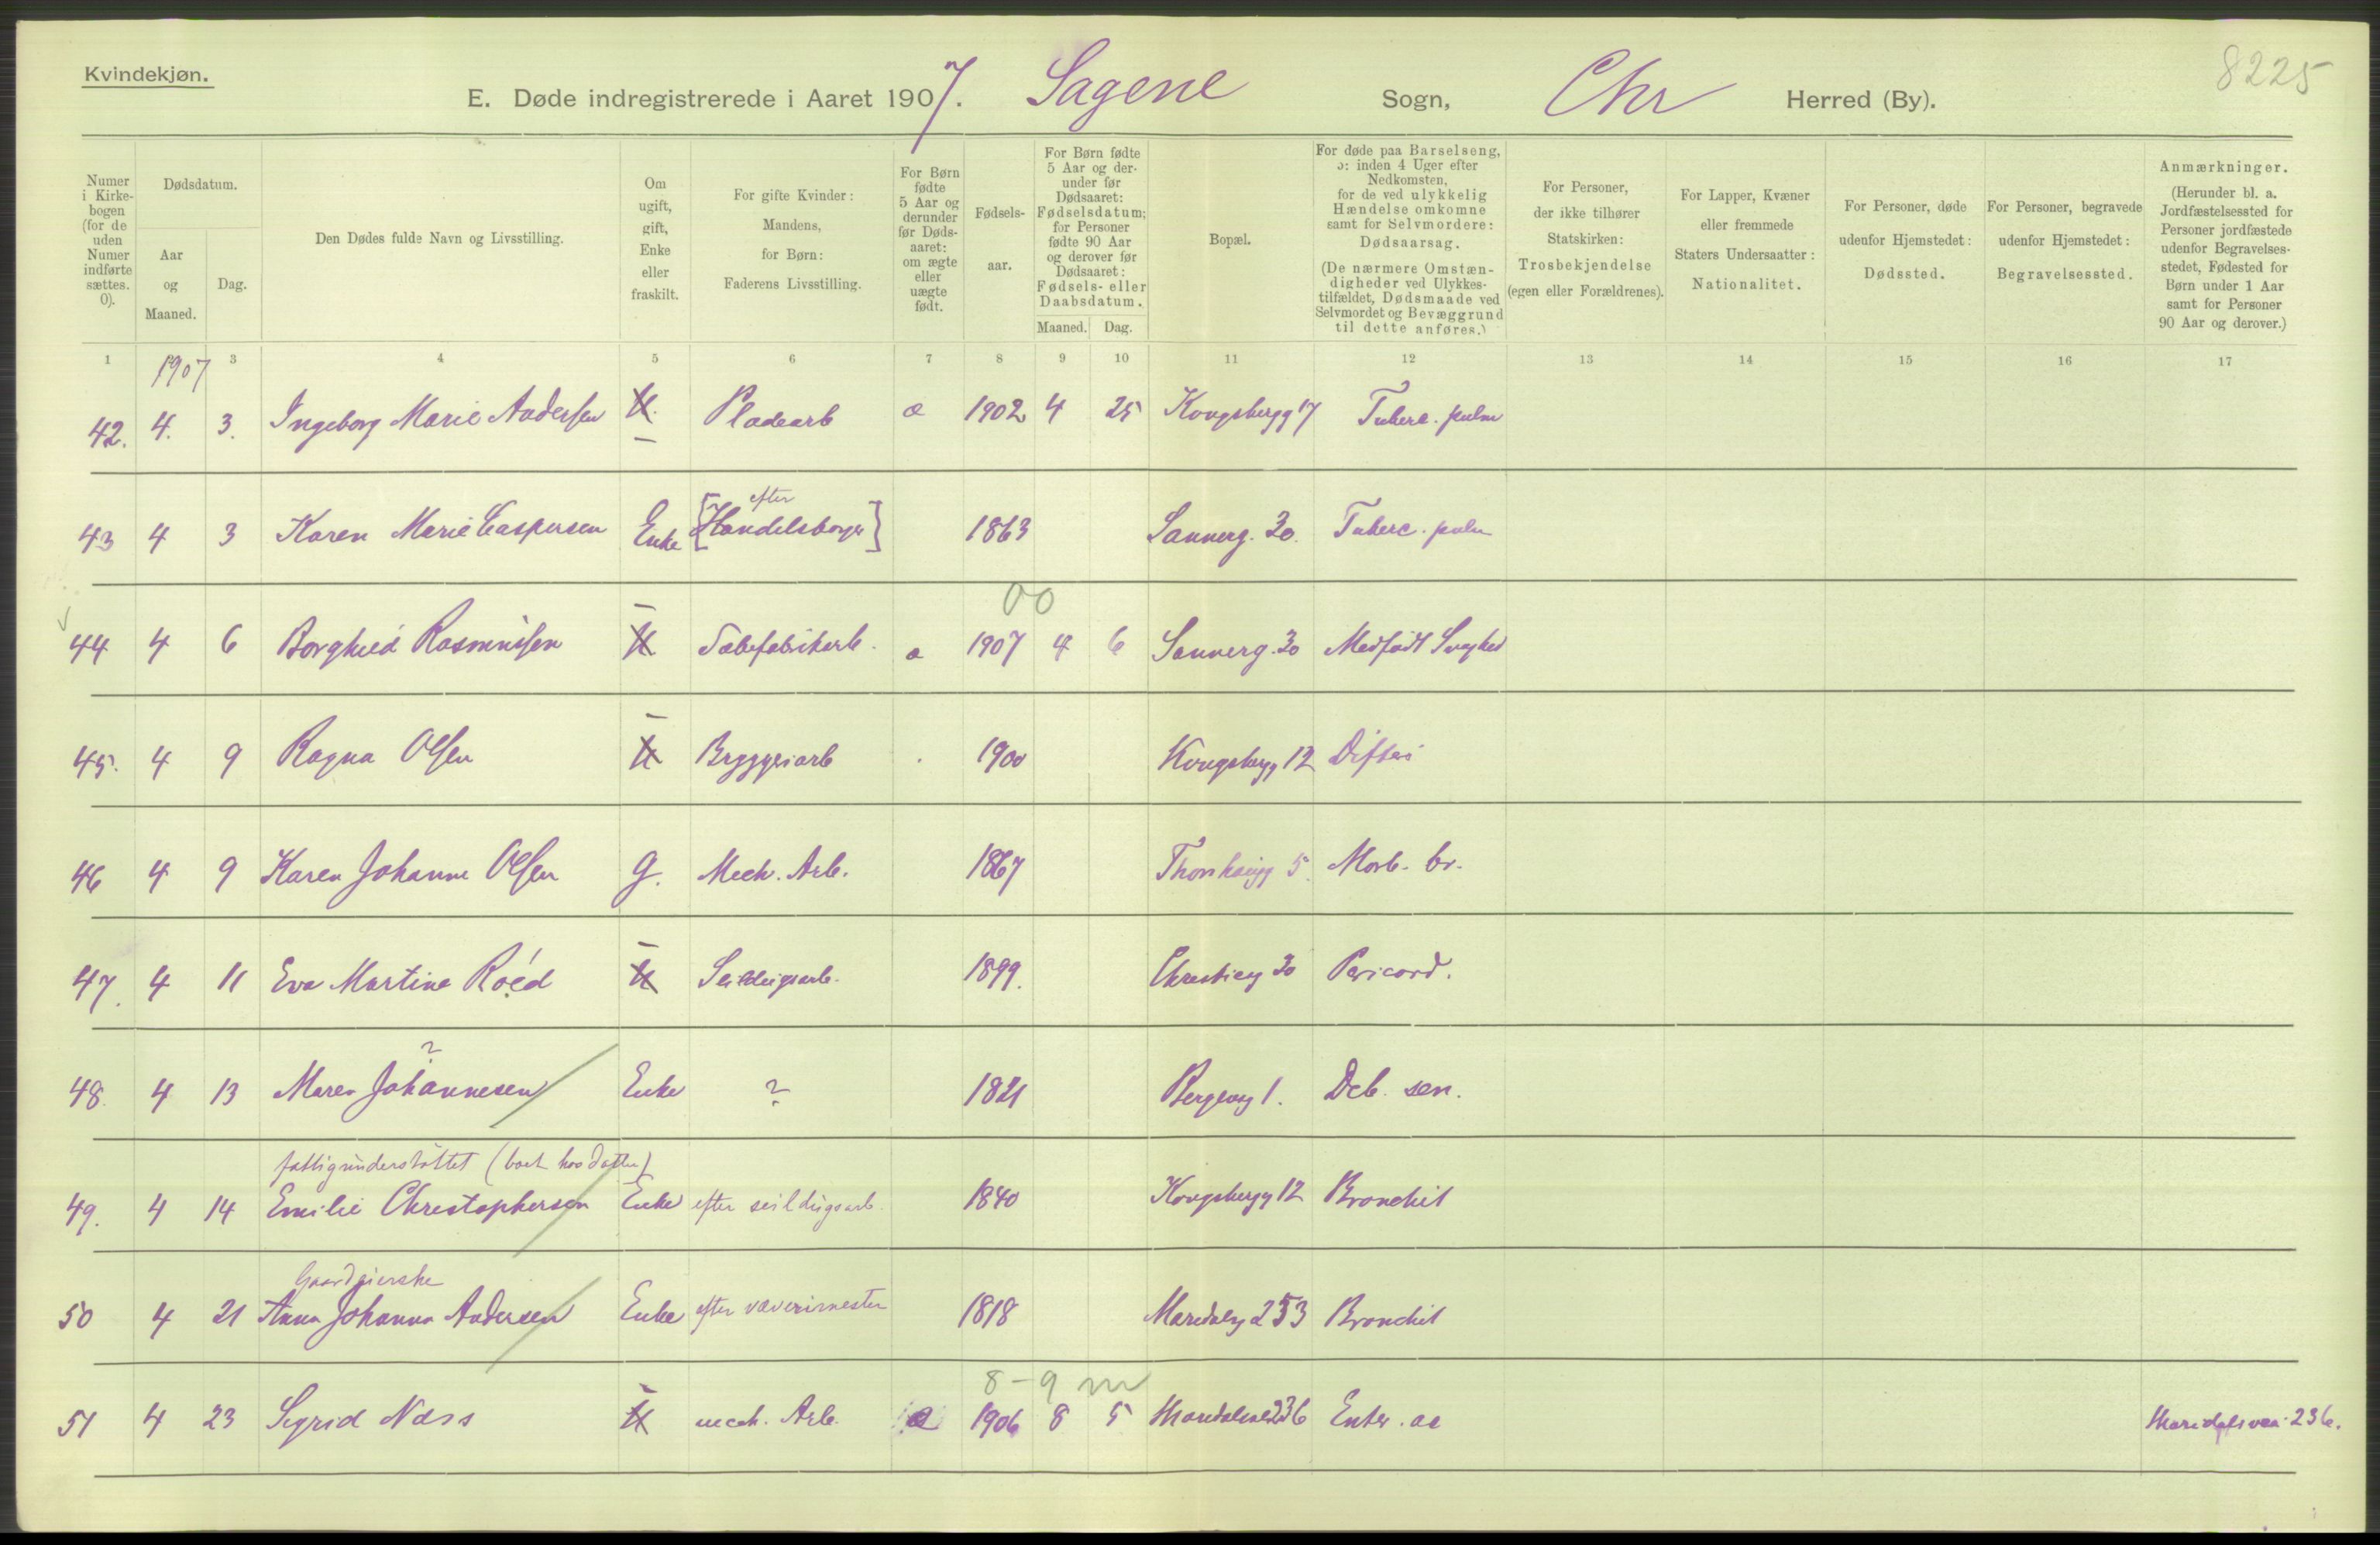 Kvindekjøn.
8225
E. Døde indregistrerede i Aaret 1907. Sagene Sogn, Chr Herred (By).
Numer i Kirkebogen (for de uden Numer indførte sættes. 0).
Dødsdatum.
Aar og Maaned.
Dag.
Den Dødes fulde Navn og Livsstilling.
Om ugift, gift, Enke eller fraskilt.
For gifte Kvinder: Mandens, for Børn: Faderens Livsstilling.
For Børn fødte 5 Aar og derunder før Dødsaaret: om ægte eller uægte født.
Fødselsaar.
For Børn fødte 5 Aar og derunder før Dødsaaret: Fødselsdatum; for Personer fødte 90 Aar og derover før Dødsaaret: Fødsels- eller Daabsdatum.
Maaned. Dag.
Bopæl.
For døde paa Barselseng, ɔ: inden 4 Uger efter Nedkomsten, for de ved ulykkelig Hændelse omkomne samt for Selvmordere: Dødsaarsag.
(De nærmere Omstændigheder ved Ulykkestilfældet, Dødsmaade ved Selvmordet og Bevæggrund til dette anføres.)
For Personer, der ikke tilhører Statskirken: Trosbekjendelse (egen eller Forældrenes).
For Lapper, Kvæner eller fremmede Staters Undersaatter: Nationalitet.
For Personer, døde udenfor Hjemstedet: Dødssted.
For Personer, begravede udenfor Hjemstedet: Begravelsessted.
Anmærkninger.
(Herunder bl. a. Jordfæstelsessted for Personer jordfæstede udenfor Begravelsesstedet, Fødested for Børn under 1 Aar samt for Personer 90 Aar og derover.)
1 3 4 5 6 7 8 9 10 11 12 13 14 15 16 17
1907
42. 4. 3. Ingeborg Marie Andersen U. Pladearb æ 1902 4 25 Kongsbergg 17 Tuberc. pulm
efter
43 4 3 Karen Marie Caspersen Enke [Handelsborger] 1863 Sannerg. 30. Tuberc. pulm
00
44 4 6 Borghild Rasmussen U Sæbefabrikarb. æ 1907 4 6 Sannerg. 30 Medfødt Svaghed
45. 4 9 Ragna Olsen U Bryggeriarb 1900 Kongsbergg 12 Difteri
46 4 9 Karen Johanne Olsen G. Mech. Arb. 1867 Thorshaugg 5. Morb. br.
47. 4 11 Eva Martine Roéd U Seildugsarb. 1899. Christieg 30 Pericard.
?
48. 4 13 Maren Johannesen Enke ? 1821 Bergvg 1. Deb. sen.
fattigunderstøttet (boet hos datter)
49. 4 14 Emilie Christophersen Enke efter seildugsarb. 1840 Kongsbergg 12 Bronchit
Gaardeierske
50 4 21 Anna Johanna Andersen Enke efter væverimester 1818 Maridalsv 253 Bronchit
8-9 m
51 4 23 Sigrid Næss U mech. Arb. æ 1906 8 5 Maridalsve 236 Enter. ac Maridalsvei 236.